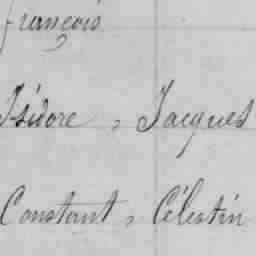 françois
Isidore, Jacques
Constant, Célestin